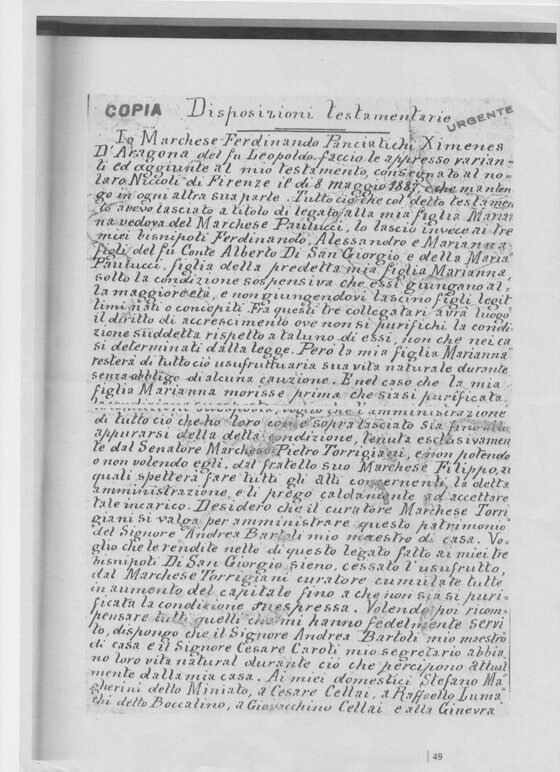 COPIA Disposizioni testamentarie URGENTE
Io Marchese Ferdinando Panciatichi Ximenes
D'Aragona del fu Leopoldo faccio le appresso varian-
ti ed aggiunte al mio testamento, consegnato al no-
taro Niccoli di Firenze il dì 8 maggio 1887, e che manten
go in ogni altra sua parte. Tutto ciò che col detto testamen
to avevo lasciato a titolo di legato alla mia figlia Marian
na vedova del Marchese Paulucci, lo lascio invece ai tre
miei bisnipoti Ferdinando, Alessandro e Marianna
figli del fu Conte Alberto Di San Giorgio e della Maria
Paulucci, figlia della predetta mia figlia Marianna,
sotto la condizione sospensiva che essi giungano al-
la maggiore età, e non giungendovi lascino figli legit
timi nati o concepiti. Fra questi tre collegatari avrà luogo
il diritto di accrescimento ove non si purifichi la condi
zione suddetta rispetto a taluno di essi, non che nei ca
si determinati dalla legge. Però la mia figlia Marianna
resterà di tutto ciò usufruttuaria sua vita naturale durante
senza obbligo di alcuna cauzione. E nel caso che la mia
figlia Marianna morisse prima che siasi purificata
che l'amministrazione
di tutto ciò che ho loro come sopra lasciato sia fino allo
appurarsi della detta condizione, tenuta esclusivamen
te dal Senatore Marchese Pietro Torrigiani, e non potendo
o non volendo egli, dal fratello suo Marchese Filippo, ai
quali spetterà fare tutti gli atti concernenti la detta
amministrazione, e li prego caldamente ad accettare
tale incarico. Desidero che il curatore Marchese Torri
giani si valga per amministrare questo patrimonio
del Signore Andrea Bartoli mio maestro di casa. Vo-
glio che le rendite nette di questo legato fatto ai miei tre
bisnipoti Di San Giorgio sieno, cessato l'usufrutto,
dal Marchese Torrigiani curatore cumulate tutte
in aumento del capitale fino a che non siasi puri-
ficata la condizione suespressa. Volendo poi ricom-
pensare tutti quelli che mi hanno fedelmente servi
to, dispongo che il Signore Andrea Bartoli mio maestro
di casa e il Signore Cesare Caroli mio segretario abbia
no loro vita natural durante ciò che percipono attual
mente dalla mia casa. Ai miei domestici Stefano Ma-
gherini detto Miniato, a Cesare Cellai, a Raffaello Luma-
chi detto Boccalino, a Giovacchino Cellai e alla Ginevra
49